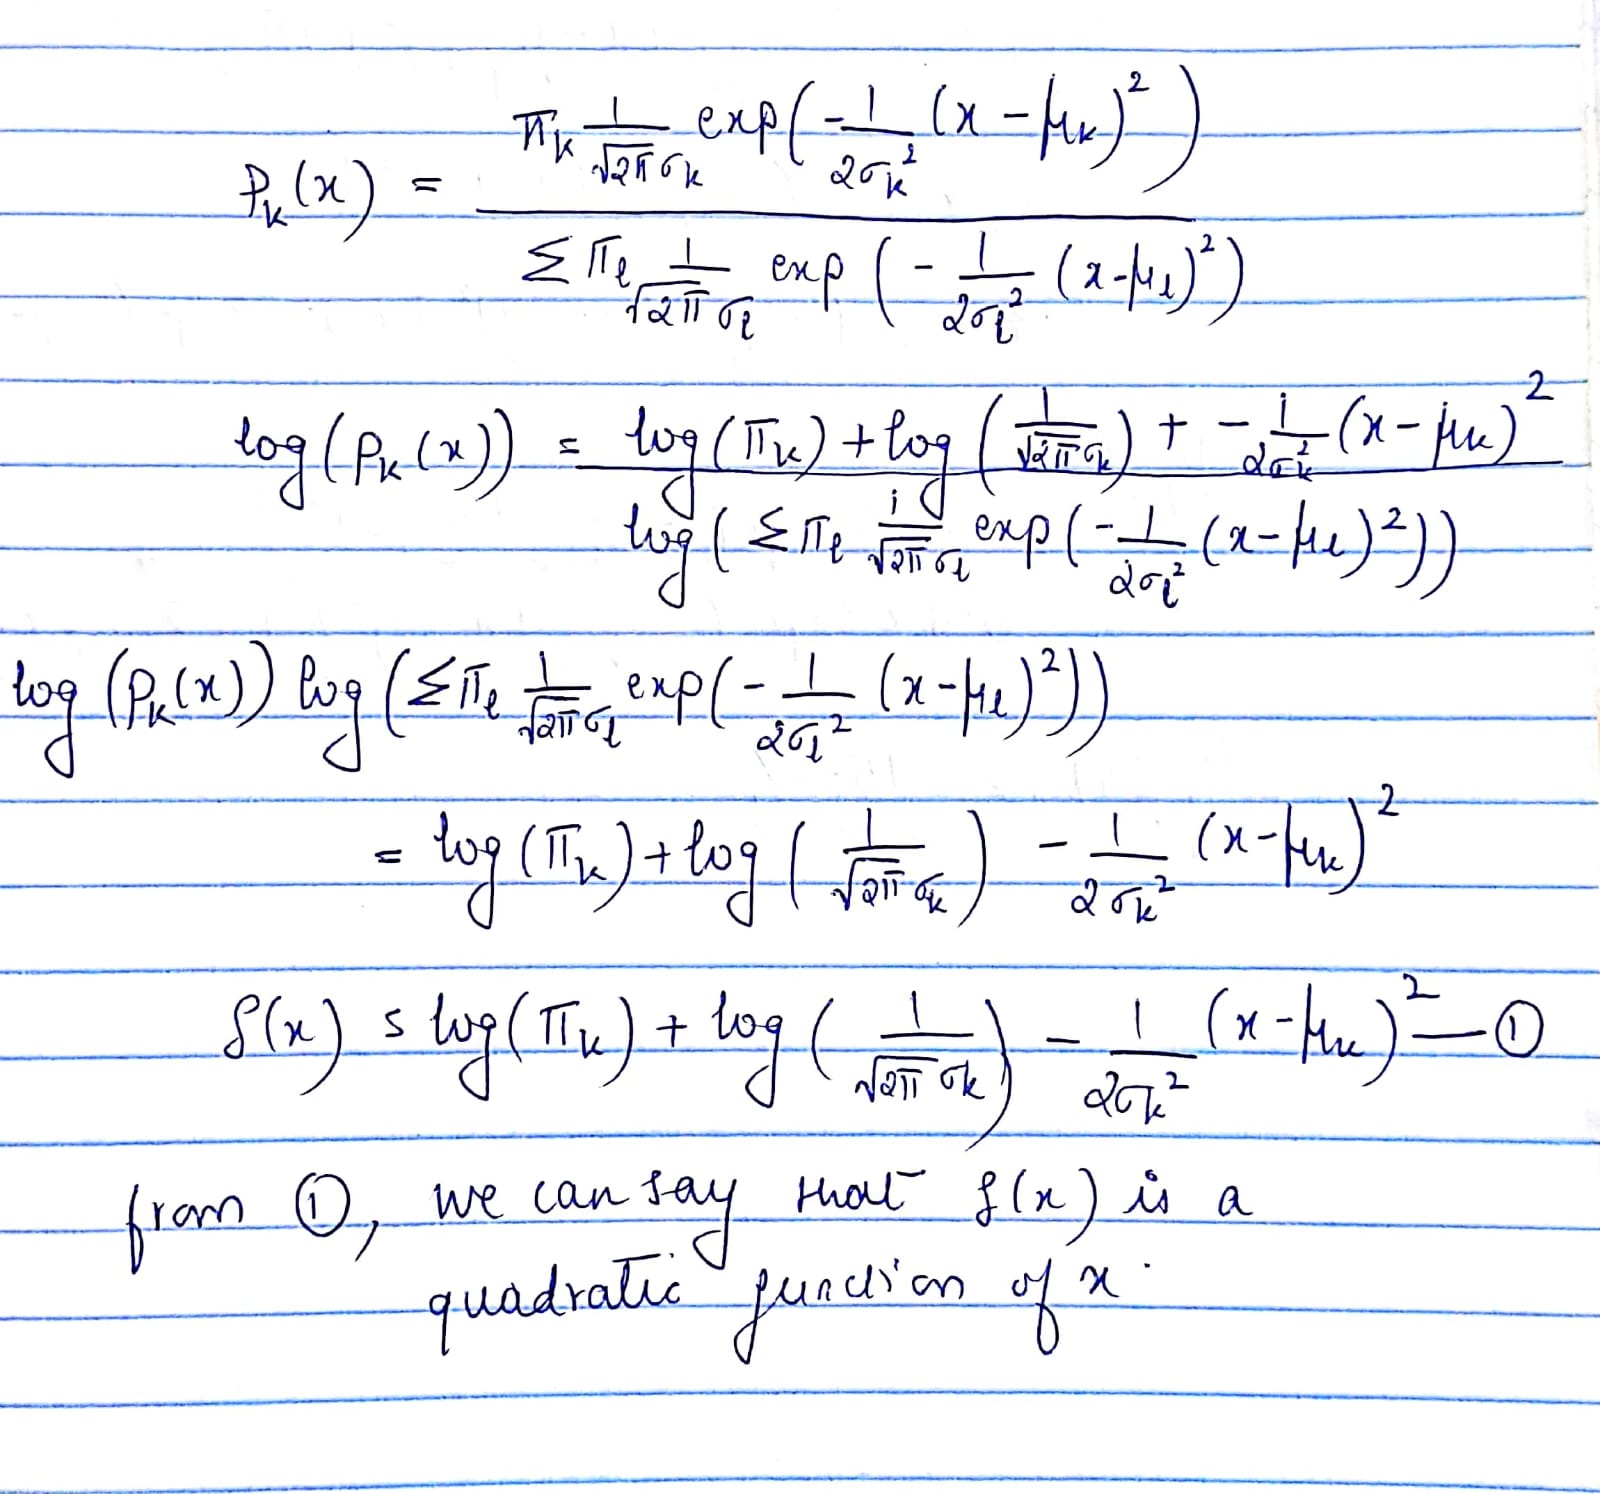 P_k(x) = \frac{π_k \frac{1}{\sqrt{2π} σ_k} exp(-\frac{1}{2σ_k^2} (x - μ_k)^2)}{Σ π_l \frac{1}{\sqrt{2π} σ_l} exp(-\frac{1}{2σ_l^2} (x-μ_l)^2)}
log(P_k(x)) = \frac{log(π_k) + log(\frac{1}{\sqrt{2π} σ_k}) + -\frac{1}{2σ_k^2} (x - μ_k)^2}{log(Σ π_l \frac{1}{\sqrt{2π} σ_l} exp(-\frac{1}{2σ_l^2} (x-μ_l)^2))}
log(P_k(x)) log(Σ π_l \frac{1}{\sqrt{2π} σ_l} exp(-\frac{1}{2σ_l^2} (x-μ_l)^2))
= log(π_k) + log(\frac{1}{\sqrt{2π} σ_k}) - \frac{1}{2σ_k^2} (x-μ_k)^2
f(x) = log(π_k) + log(\frac{1}{\sqrt{2π} σ_k}) - \frac{1}{2σ_k^2} (x-μ_k)^2 — ①
from ①, we can say that f(x) is a
quadratic function of x.